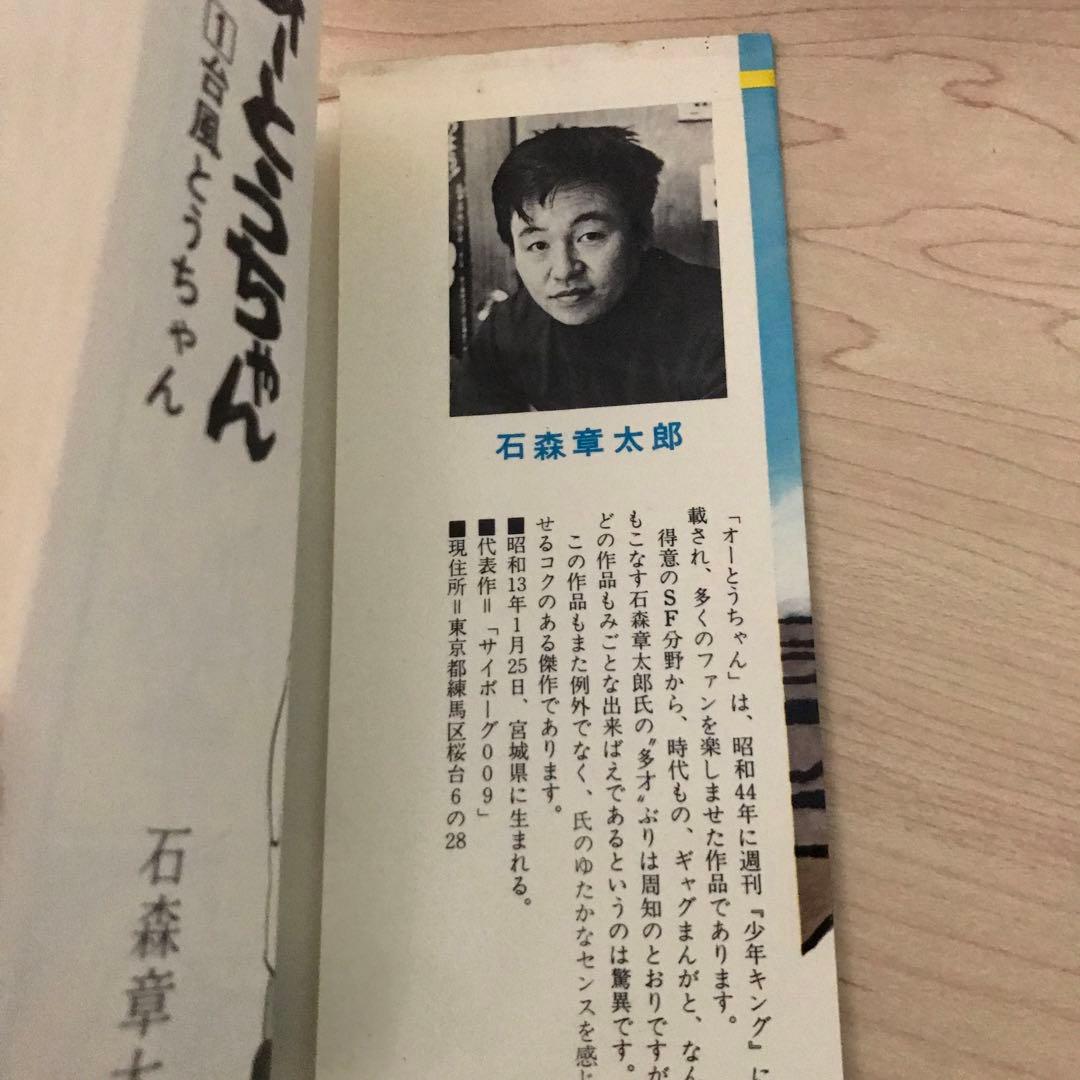 石森章太郎
「オーとうちゃん」は、昭和44年に週刊『少年キング』に
載され、多くのファンを楽しませた作品であります。
得意のSF分野から、時代もの、ギャグまんがと、なん
もこなす石森章太郎氏の〝多才〟ぶりは周知のとおりですが
どの作品もみごとな出来ばえであるというのは驚異です。
この作品もまた例外でなく、氏のゆたかなセンスを感じ
せるコクのある傑作であります。
■昭和13年1月25日、宮城県に生まれる。
■代表作=「サイボーグ009」
■現住所=東京都練馬区桜台6の28
オーとうちゃん
1台風とうちゃん
石森章